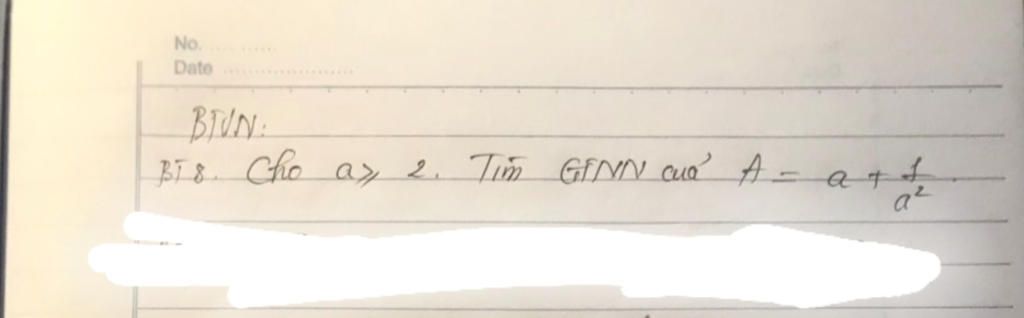 No.
Date
BTVN:
BT 8. Cho a ⩾ 2. Tìm GTNN của A = a + 1/a²